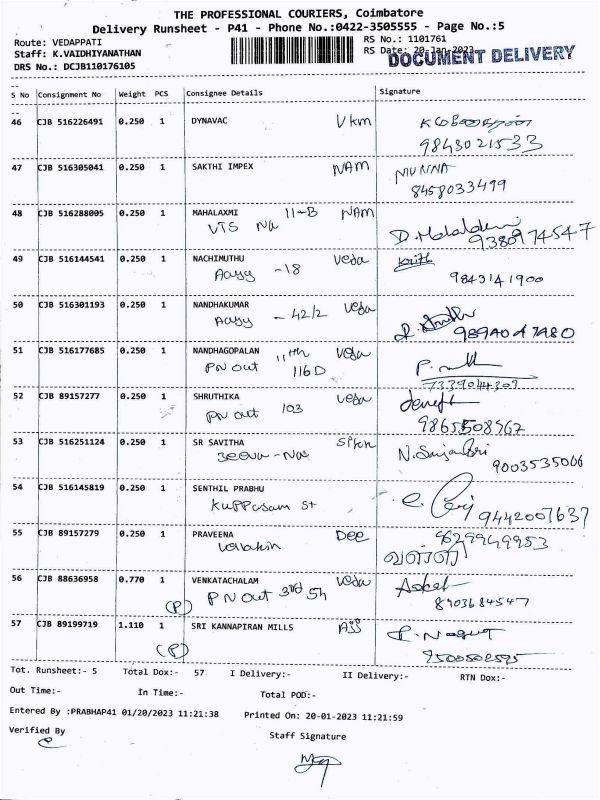 THE PROFESSIONAL COURIERS, Coimbatore
Delivery Runsheet - P41 - Phone No.:0422-3505555 - Page No.:5
Route: VEDAPPATI
RS No.: 1101761
Staff: K.VAIDHIYANATHAN
RS Date: 20-Jan-2023
DOCUMENT DELIVERY
DRS No.: DCJB110176105
S No Consignment No Weight PCS Consignee Details Signature
46 CJB 516226491 0.250 1 DYNAVAC Vkm
9843021533
47 CJB 516305041 0.250 1 SAKTHI IMPEX NAM MUNNA
8458033499
48 CJB 516288005 0.250 1 MAHALAXMI 11-B NAM
VTS Na
9380974547
49 CJB 516144541 0.250 1 NACHIMUTHU Veda
-18 9843141900
50 CJB 516301193 0.250 1 NANDHAKUMAR Veda
- 42/2
51 CJB 516177685 0.250 1 NANDHAGOPALAN 11th Veda
PN out 116D 7339044309
52 CJB 89157277 0.250 1 SHRUTHIKA Veda
PN out 103 9865508967
53 CJB 516251124 0.250 1 SR SAVITHA
9003535006
54 CJB 516145819 0.250 1 SENTHIL PRABHU
Kuppusam St 9442007637
55 CJB 89157279 0.250 1 PRAVEENA Dee 8299949953
56 CJB 88636958 0.770 1 VENKATACHALAM Veda
(P) PN Out 3rd 5h 8903684547
57 CJB 89199719 1.110 1 SRI KANNAPIRAN MILLS Ajj
(P) 9500502595
Tot. Runsheet:- 5 Total Dox:- 57 I Delivery:- II Delivery:- RTN Dox:-
Out Time:- In Time:- Total POD:-
Entered By :PRABHAP41 01/20/2023 11:21:38 Printed On: 20-01-2023 11:21:59
Verified By
Staff Signature